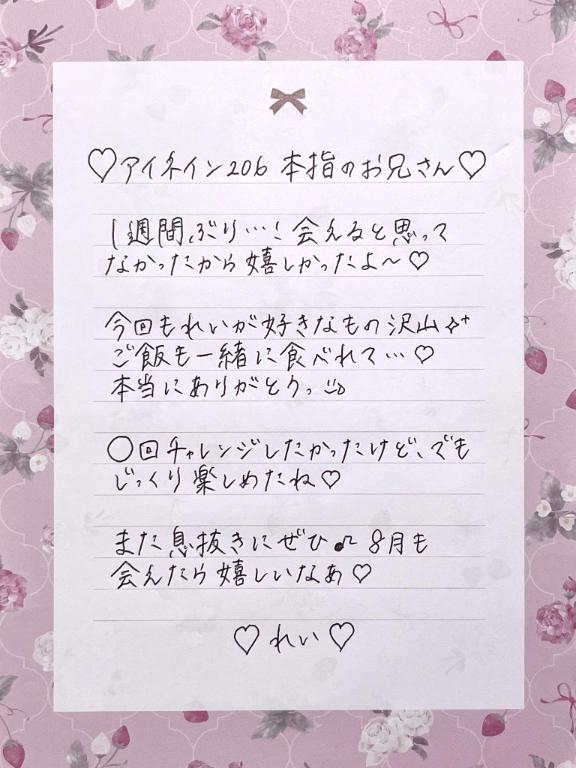 ♡アイネイン206 本指のお兄さん♡
1週間ぶり…! 会えると思って
なかったから嬉しかったよ〜♡
今回もれいが好きなもの沢山✧⁺
ご飯も一緒に食べれて…♡
本当にありがとうっ
〇回チャレンジしたかったけど、でも
じっくり楽しめたね♡
また息抜きにぜひ♪ 8月も
会えたら嬉しいなあ♡
♡れい♡